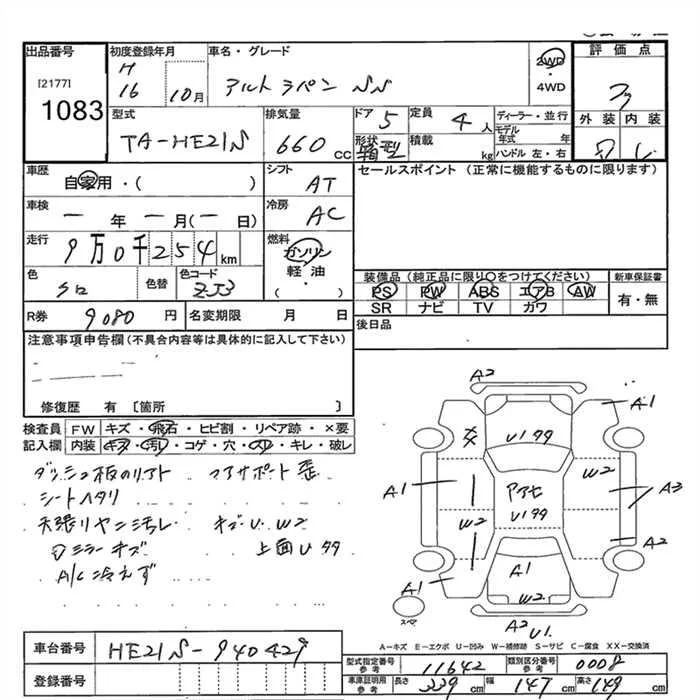 出品番号 初度登録年月 車名・グレード 評価点
[2177] H 16 10月 アルト ラパン SS 2WD・4WD
1083
外装 内装
型式 排気量 ドア 定員 ディーラー・並行
TA-HE21S 660cc 5 4人 モデル年式 年
形状 箱型 積載 kg ハンドル 左・右
車歴 自家用・( ) シフト AT セールスポイント (正常に機能するものに限ります)
車検 一年一月(一日) 冷房 AC
走行 9万0千254km 燃料 ガソリン 軽油・( )
色 シロ 色替 色コード ZJ3
装備品(純正品に限り○をつけてください) 新車保証書
PS PW ABS エアB AW 有・無
SR ナビ TV ガワ
R券 9080円 名変期限 月 日 後日品
注意事項申告欄(不具合内容等は具体的に記入して下さい)
修復歴 有 〔箇所 〕
検査員記入欄 FW キズ・飛石・ヒビ割・リペア跡・×要
内装 キズ・汚れ・コゲ・穴・スレ・キレ・破レ
ダッシュ板のリアト コアサポート歪
シートヘタリ
天張リヤニ汚レ キズU W2
ミラーキズ 上面U
A/C冷えず
A2
A1
U1
A1 W2 A3
アアセ
W2 A2
A1 A1
W2
スペア A2 U1
A-キズ E-エクボ U-凹み W-補修跡 S-サビ C-腐食 XX-交換済
車台番号 HE21S-940429
登録番号
型式指定番号 参考 11642 類別区分番号 参考 0008
車庫証明用 参考 長さ 339cm 幅 147cm 高さ 149cm